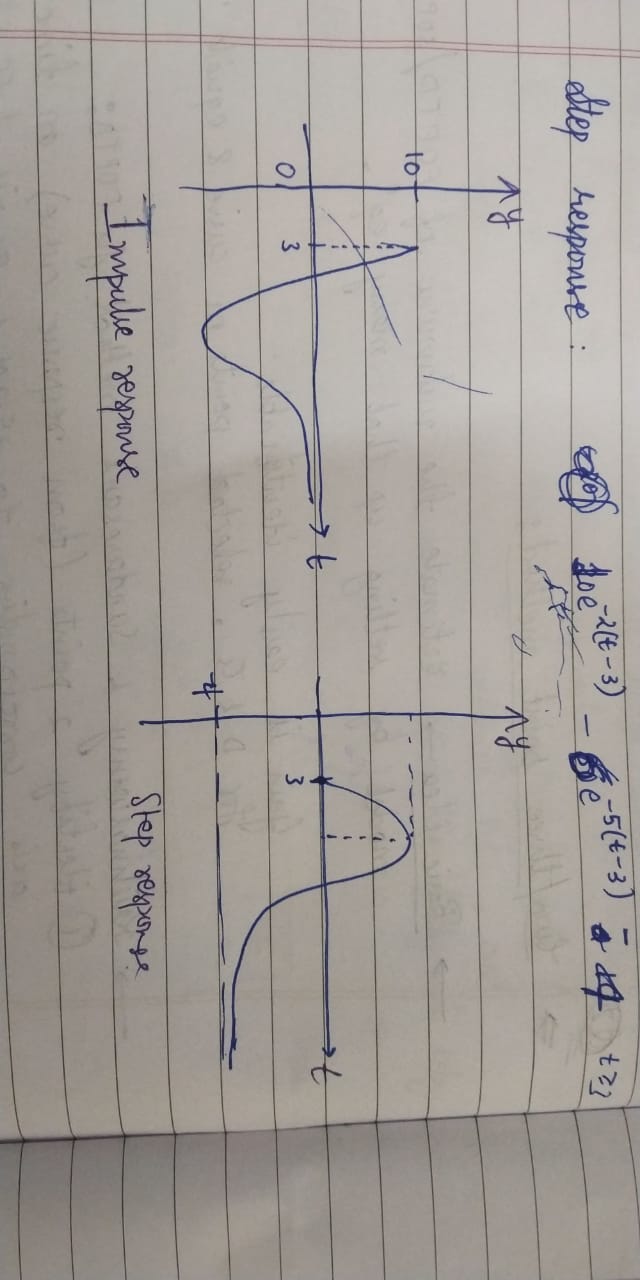 Step response : 10e^-2(t-3) - 6e^-5(t-3) - 4 t≥3
y
10
0
3
t
Impulse response
y
3
t
-4
Step response